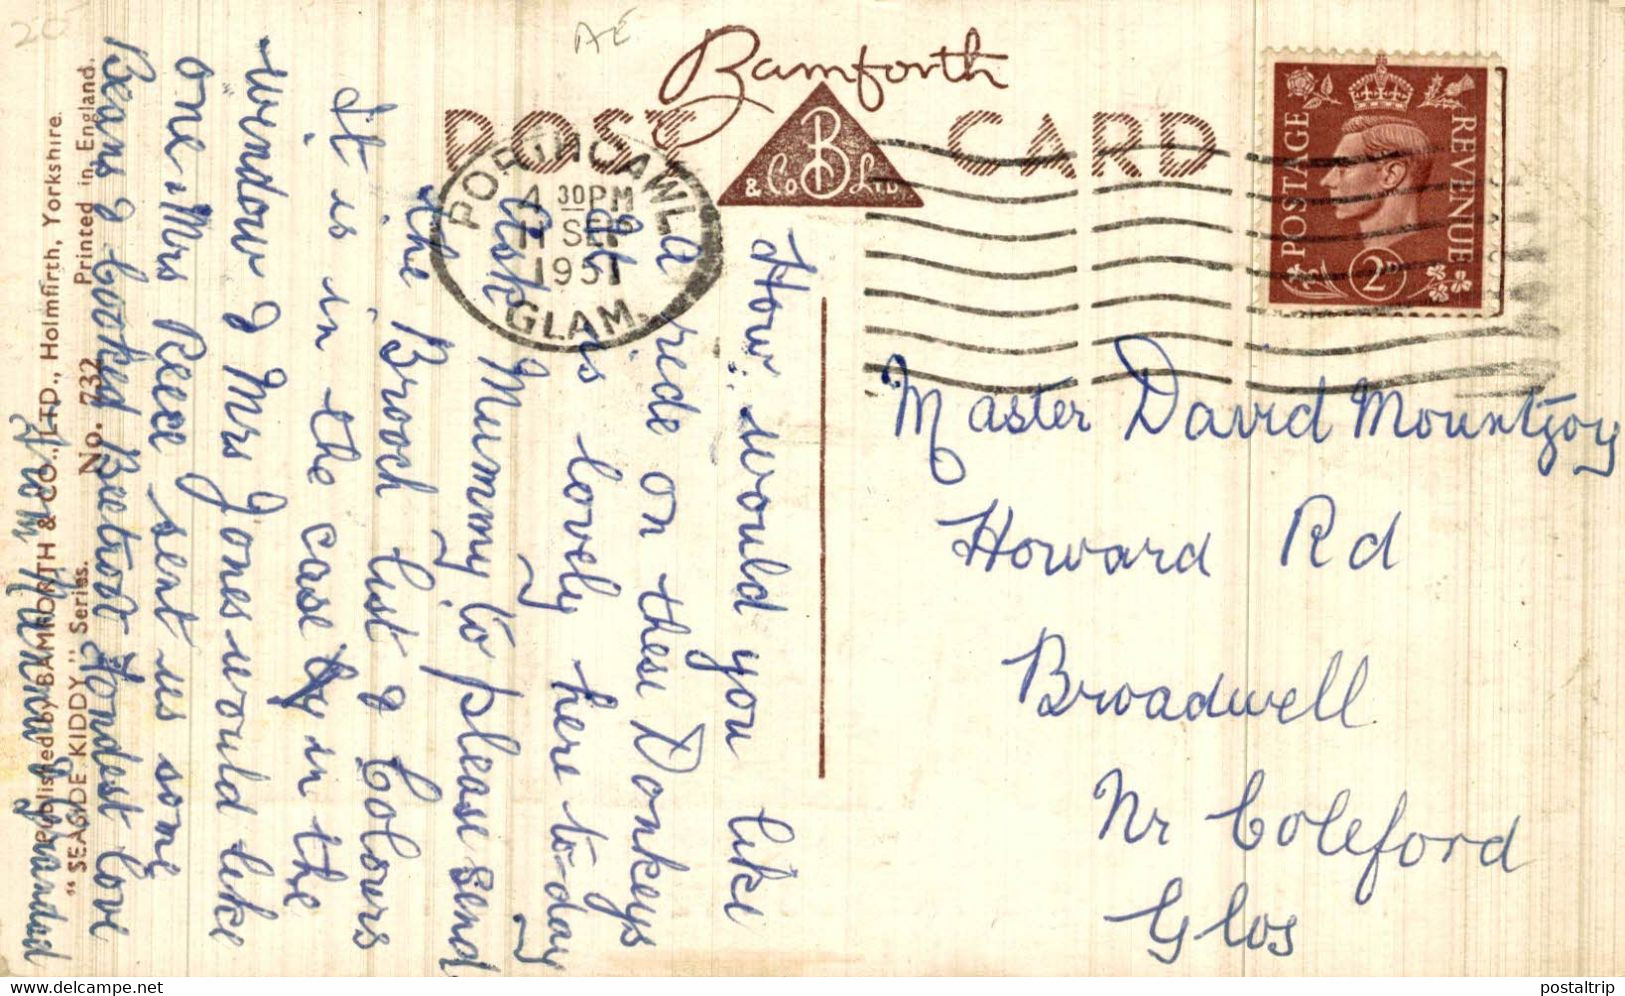 20
AE
Bamforth
POST CARD
B
& Co Ltd
PORTHCAWL
4 30 PM
11 SEP
1951
GLAM.
POSTAGE REVENUE
2D
Master David Mountjoy
Howard Rd
Broadwell
Nr Coleford
Glos
How would you like
a ride on these Donkeys
It is lovely here to-day
Ask Mummy to please send
the Brooch list & Colours
It is in the case by in the
window & Mrs Jones would like
one. Mrs Reece sent us some
Beans & Cooked Beetroot Fondest love
from Nanna & Grandad
No. 732 Printed in England.
"SEASIDE KIDDY" Series.
Published by BAMFORTH & CO., LTD., Holmfirth, Yorkshire.
www.delcampe.net
postaltrip